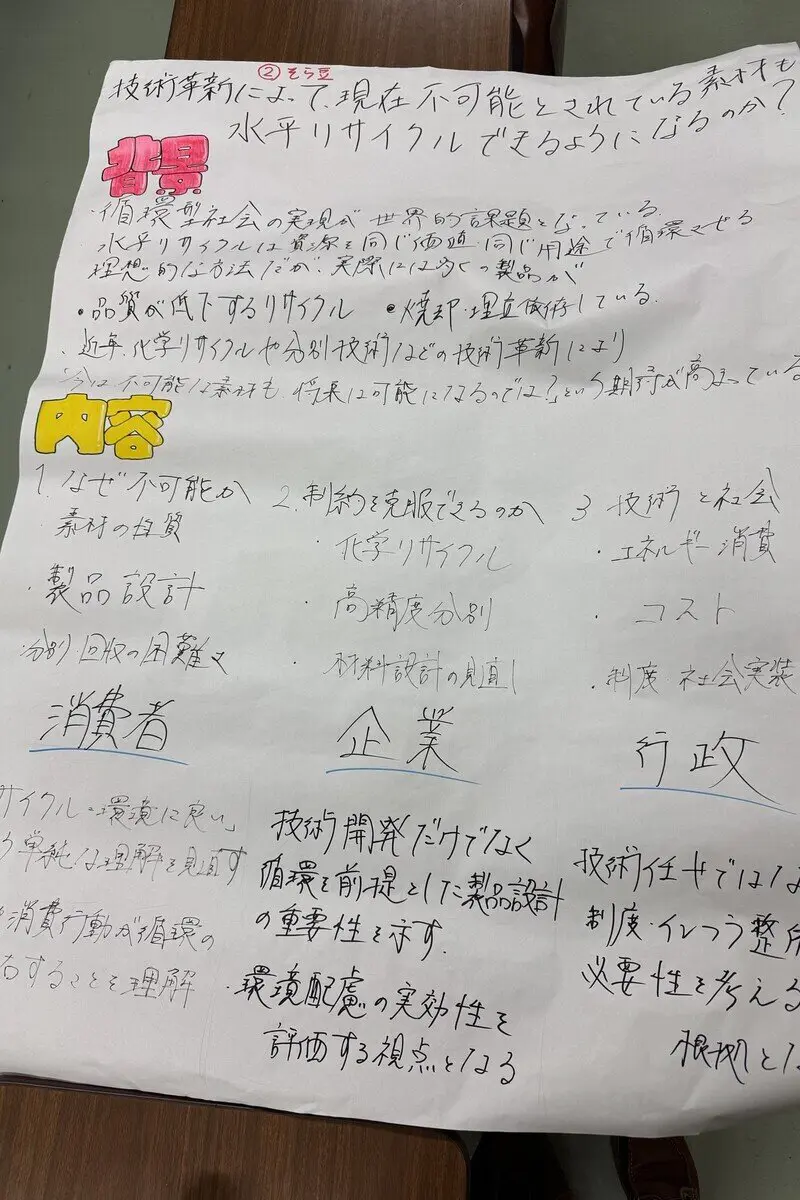 ② そら豆
技術革新によって、現在不可能とされている素材も
水平リサイクルできるようになるのか?
背景
・循環型社会の実現が世界的課題となっている
水平リサイクルは資源を同じ価値・同じ用途で循環させる
理想的な方法だが、実際には多くの製品が
・品質が低下するリサイクル ・焼却・埋立依存している.
・近年、化学リサイクルや分別技術などの技術革新により
「今は不可能な素材も、将来は可能になるのでは?」という期待が高まっている
内容
1. なぜ不可能か
・素材の性質
・製品設計
・分別・回収の困難さ
2. 制約を克服できるのか
・化学リサイクル
・高精度分別
・材料設計の見直し
3 技術と社会
・エネルギー消費
・コスト
・制度・社会実装
消費者
サイクル=環境に良い」
単純な理解を見直す
消費行動が循環の
右することを理解
企業
技術開発だけでなく
循環を前提とした製品設計
の重要性を示す.
・環境配慮の実効性を
評価する視点となる
行政
技術任せではな
制度・インフラ整
必要性を考える
根拠とな